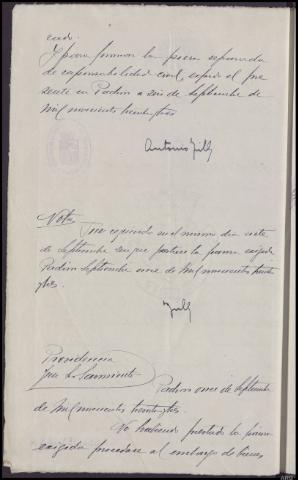 cado.
Y para formar la pieza separada
de responsabilidad civil, expido el pre
sente en Padrón a seis de Septiembre de
mil novecientos treinta y tres
Antonio
Nota
en el mismo día siete
de Septiembre sin que prestara la fianza exigida
Padrón Septiembre once de mil novecientos treinta
y tres.
Providencia
Juez Sr Sarmiento
Padrón once de Septiembre
de mil novecientos treinta y tres.
No habiendo prestado la fianza
exigida procedase al embargo de bienes